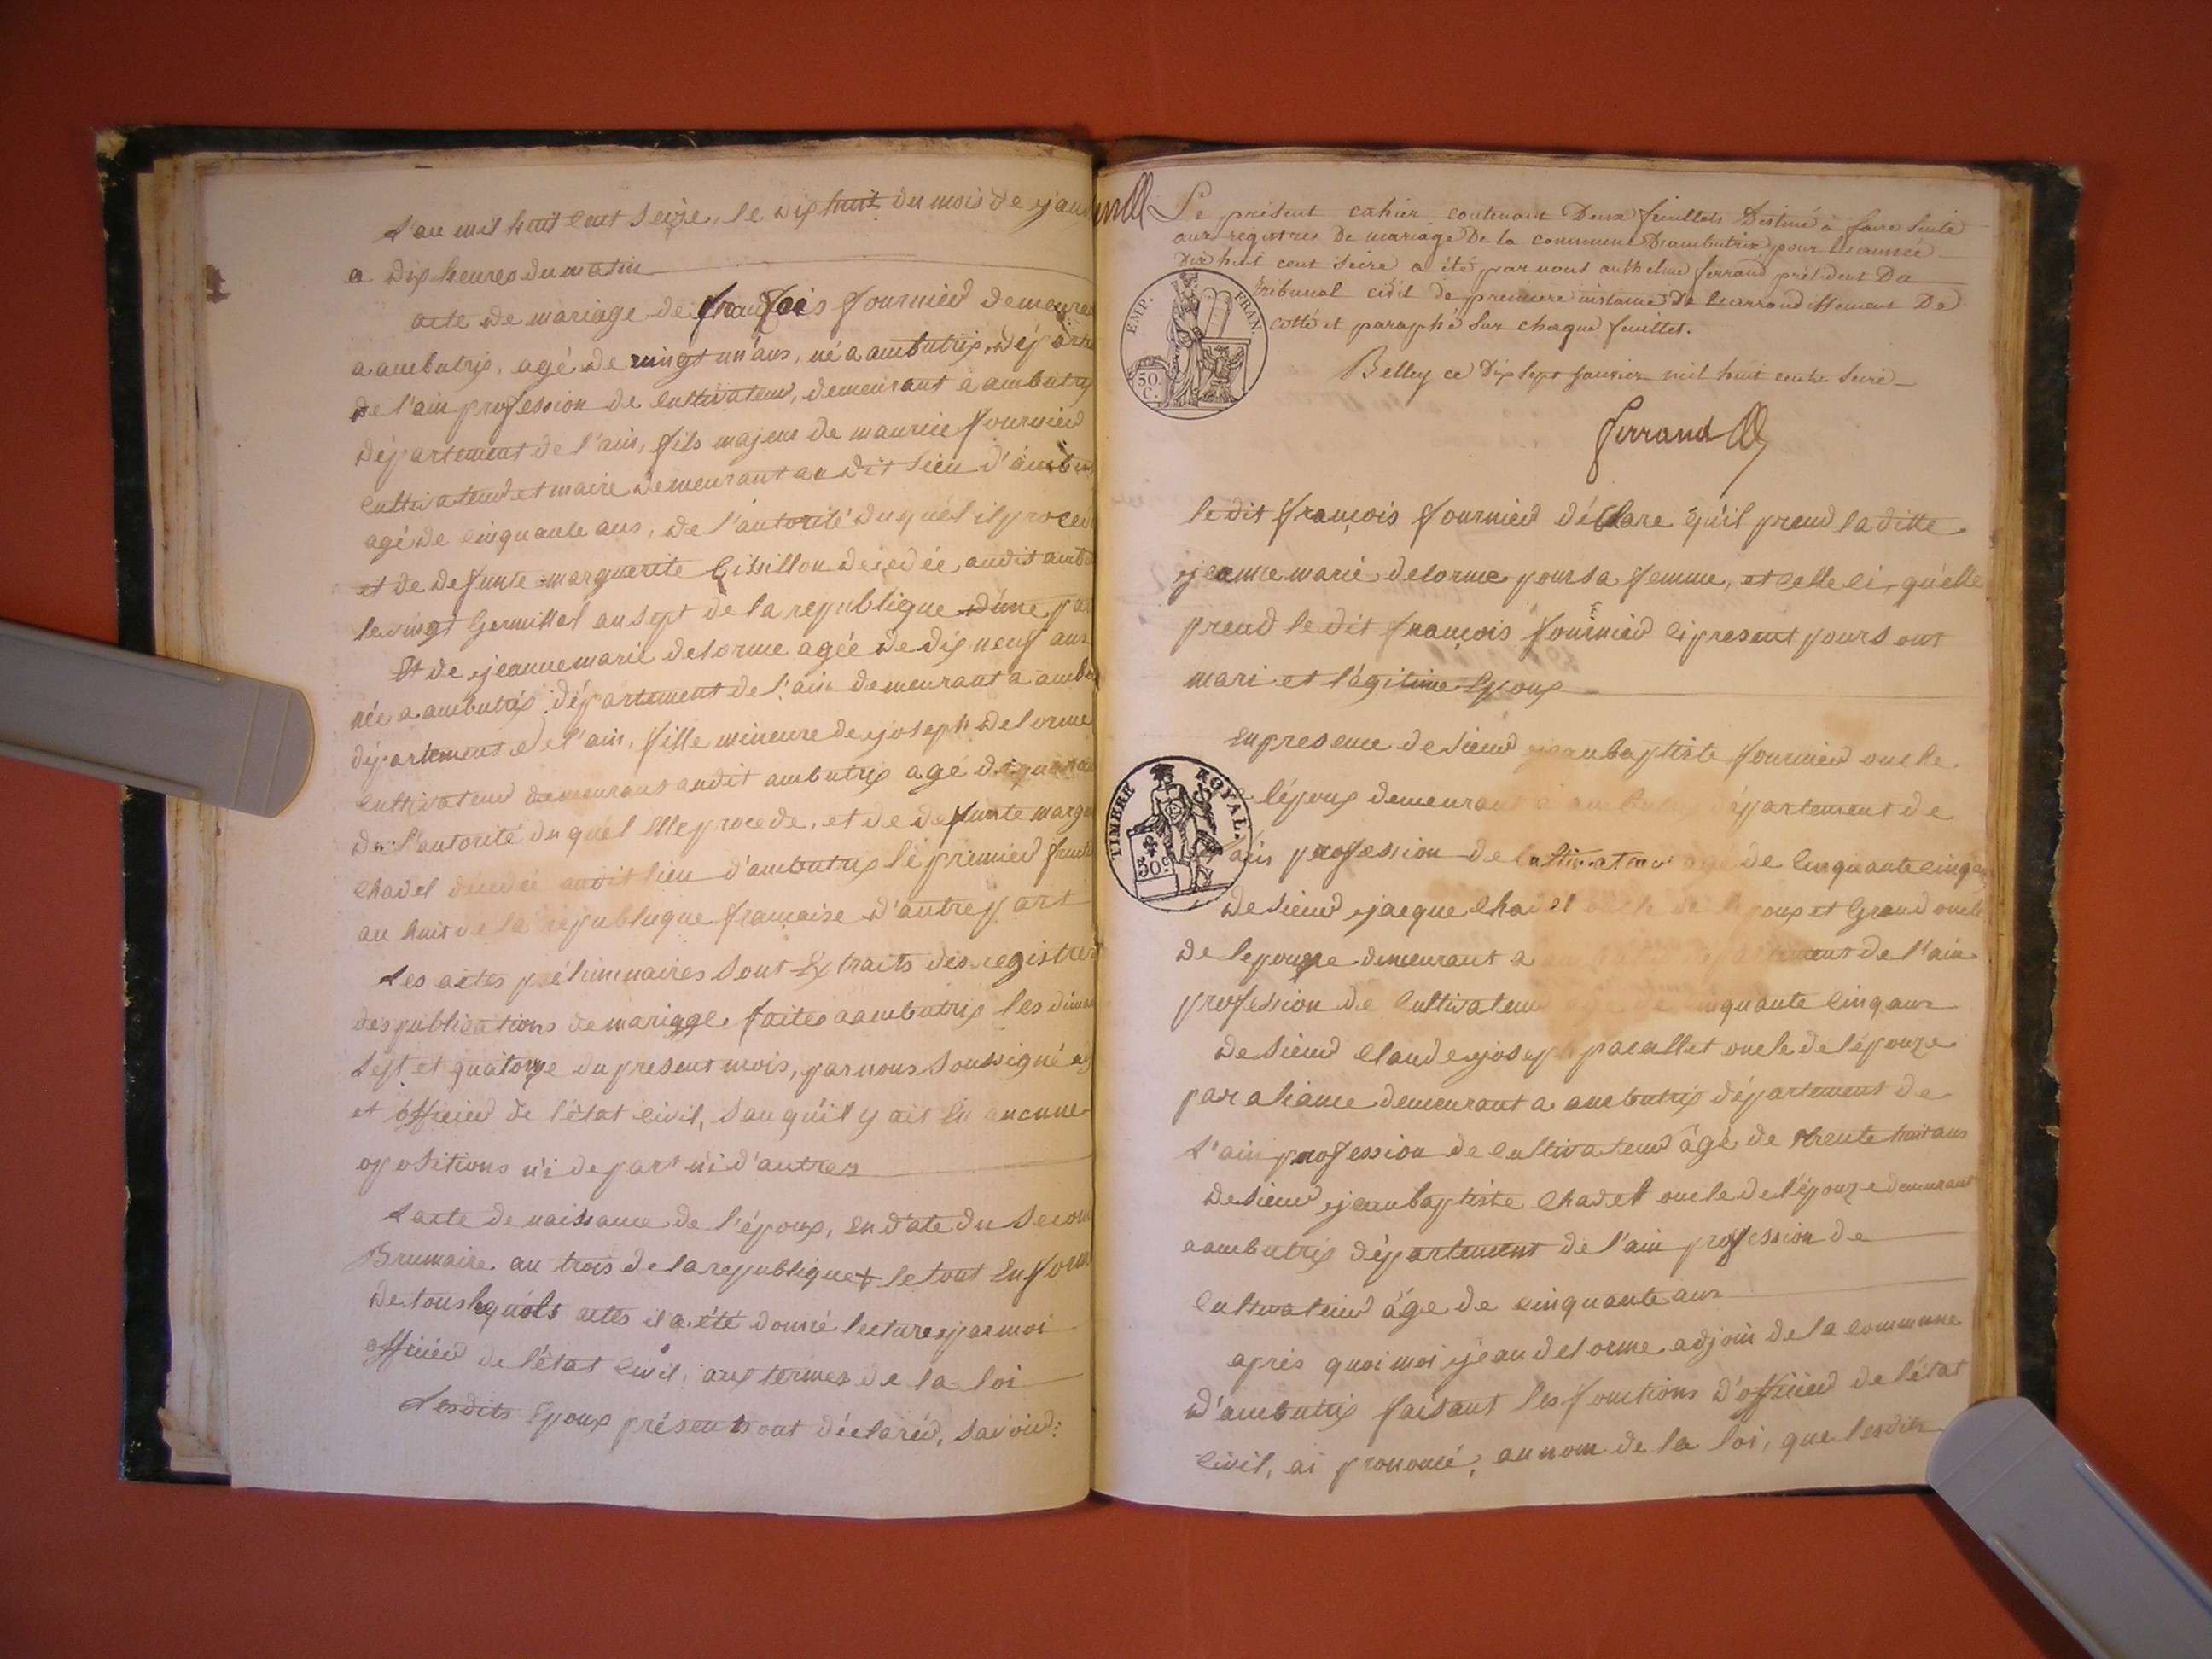 L'an mil huit cent seize, le dix huit du mois de
a dix heures du matin
acte de mariage de françois fournier
a ambutrix, agé de vingt un ans, né a ambutrix,
de l'ain profession de cultivateur, demeurant a
département de l'ain, fils majeur de maurice fournier
cultivateur et maire demeurant au dit lieu
agé de cinquante ans, de l'autorité duquél il
et de defunte marguerite decedée audit
le vingt Germillal an sept de la republique d'une
Et de jeanne marie delorme agée de dix neuf ans
née a ambutrix département de l'ain demeurant a
département de l'ain, fille mineure de joseph delorme
cultivateur demeurant audit ambutrix agé de
de l'autorité du quél elle procede, et de defunte
chadel décédée audit lieu d'ambutrix le premier
an huit de la republique française d'autre part
Les actes préliminaires sont Extraits des registres
des publications de mariage faites a ambutrix les
sept et quatorze du present mois, par nous soussigné
et officier de l'état civil, san qu'il y ait Eu aucune
opositions n'i de part n'i d'autres
L'acte de naissance de l'époux, en date du
Brumaire an trois de la republique + le tout En
de tous lequéls actes il a été donné lecture par moi
officier de l'état civil, aux termes de la loi
Lesdits Epoux présents ont déclarér, savoir:
Le présent cahier contenant Deux feuillets Destiné à faire suite
aux registres De mariage De la commune D'ambutrix pour l'année
dix huit cent seize a été par nous anthelme ferrand président Du
Tribunal civil de premiere instance De l'arrondissement De
EMP. FRAN.
50 C.
cotté et paraphé sur chaque feuillet.
Belley ce Dix sept janvier mil huit cent seize
ferrand
le dit françois fournier déclare qu'il prend la ditte
jeanne marie delorme pour sa femme, et celle ci, qu'elle
prend le dit françois fournier ci present pour son
mari et légitime Epoux
En presence de sieur jean baptiste fournier oncle
l'époux demeurant a département de
TIMBRE ROYAL.
50 c
profession de cultivateur agé de cinquante cinq
de sieur jacque chadel oncle de l'epoux et Grand oncle
de lepouze demeurant a département de l'ain
profession de cultivateur agé de cinquante cinq ans
de sieur claude joseph pacallet oncle de l'épouze
par aliance demeurant a ambutrix département de
L'ain profession de cultivateur âgé de trente huit ans
de sieur jean baptiste chadel oncle de l'épouze demeurant
a ambutrix département de l'ain profession de
cultivateur âge de cinquante ans
après quoi moi jean delorme adjoin de la commune
d'ambutrix faisant les fonctions d'officier de l'état
civil, ai prononcé, au nom de la loi, que lesdits